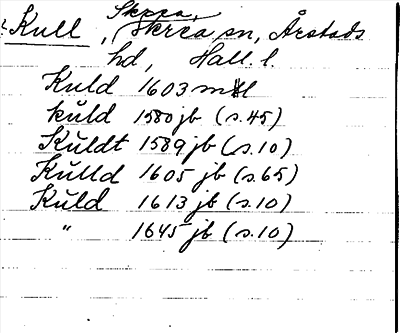 Skrea,
Kull, Skrea sn, Årstads
hd, Hall. l.
Kuld 1603 mtl
kuld 1580 jb (s. 45)
Kŭldt 1589 jb (s. 10)
Kŭlld 1605 jb (s. 65)
Kŭld 1613 jb (s. 10)
" 1645 jb (s. 10)